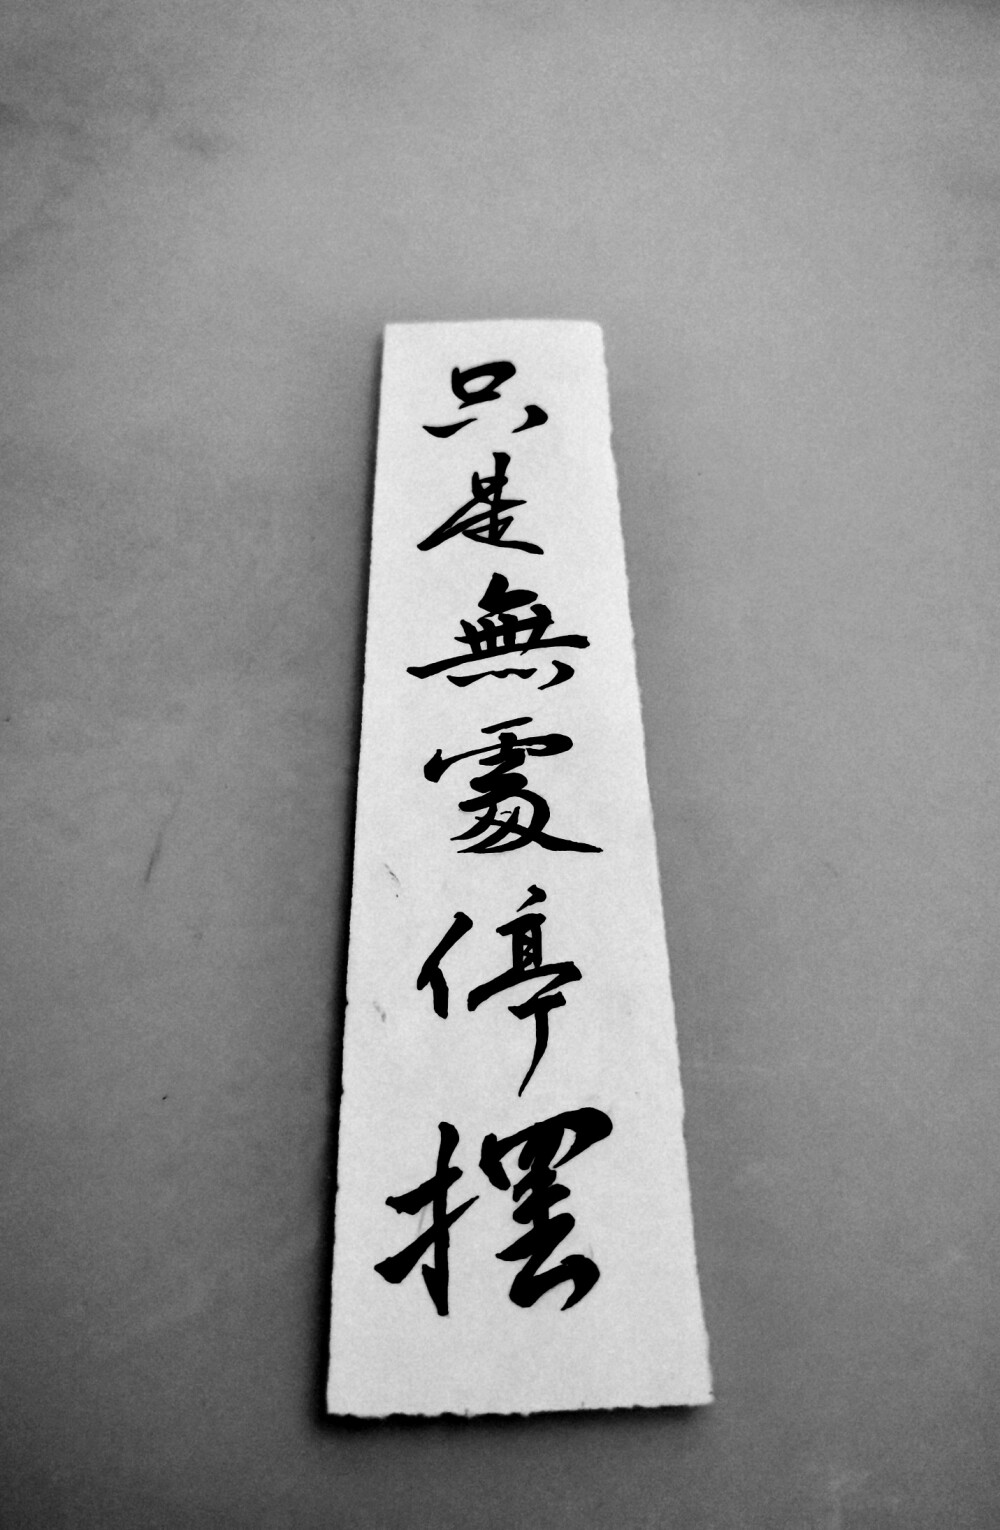 只是無處停擺